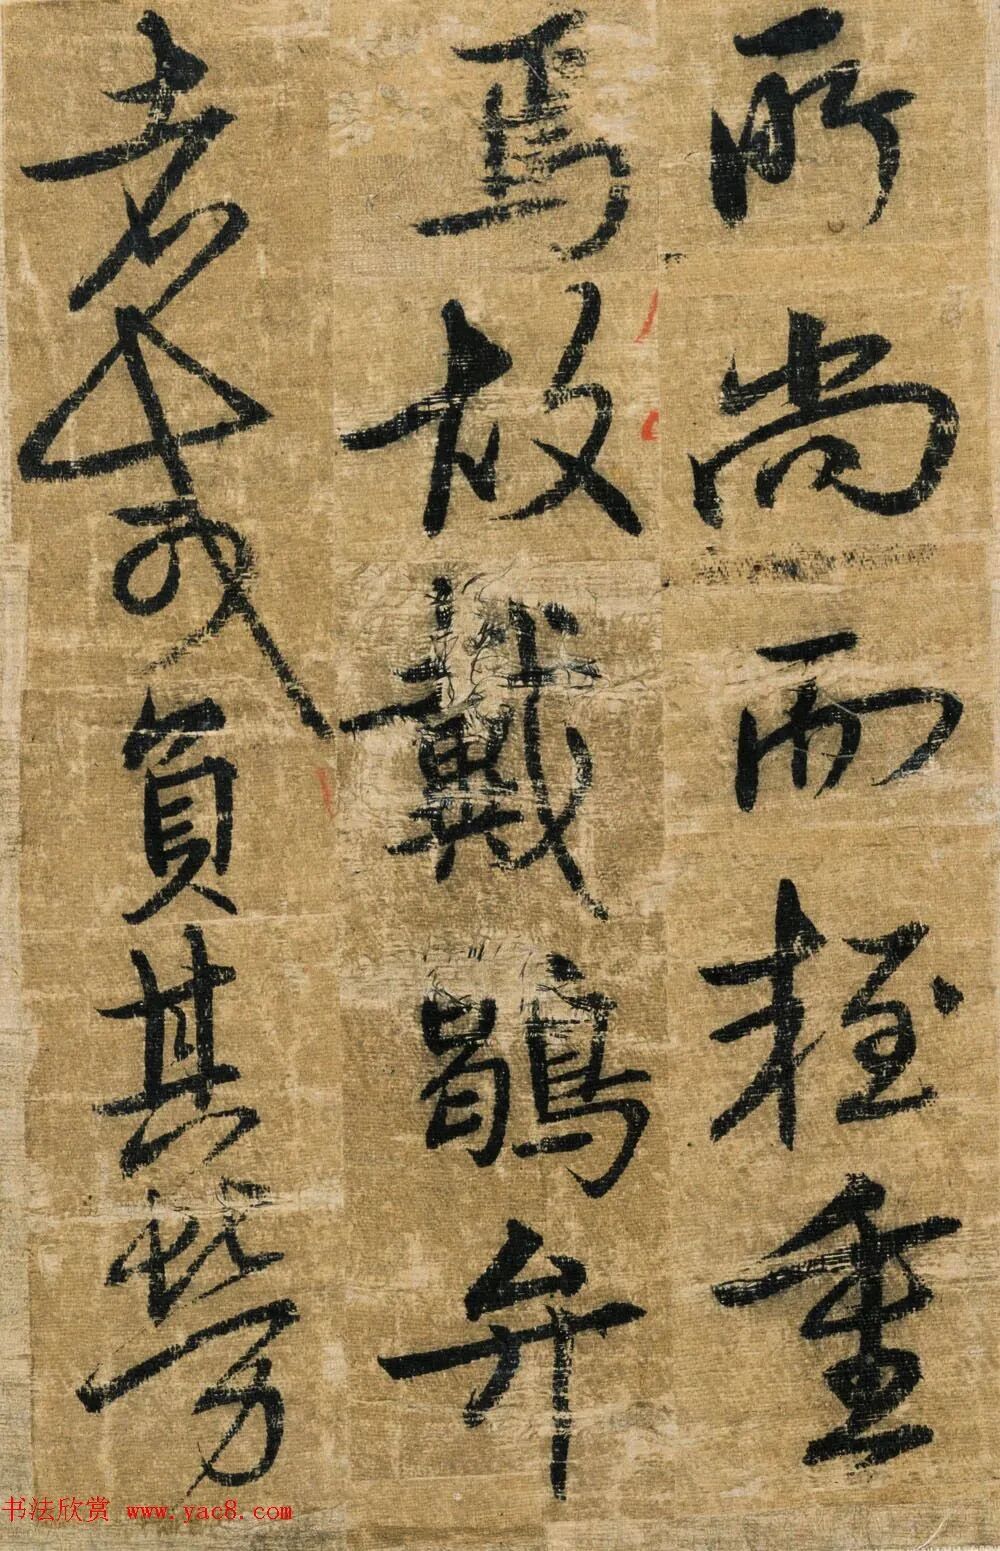 所尚而輕重
焉故戴鶡弁
者或負其
书法欣赏 www.yac8.com